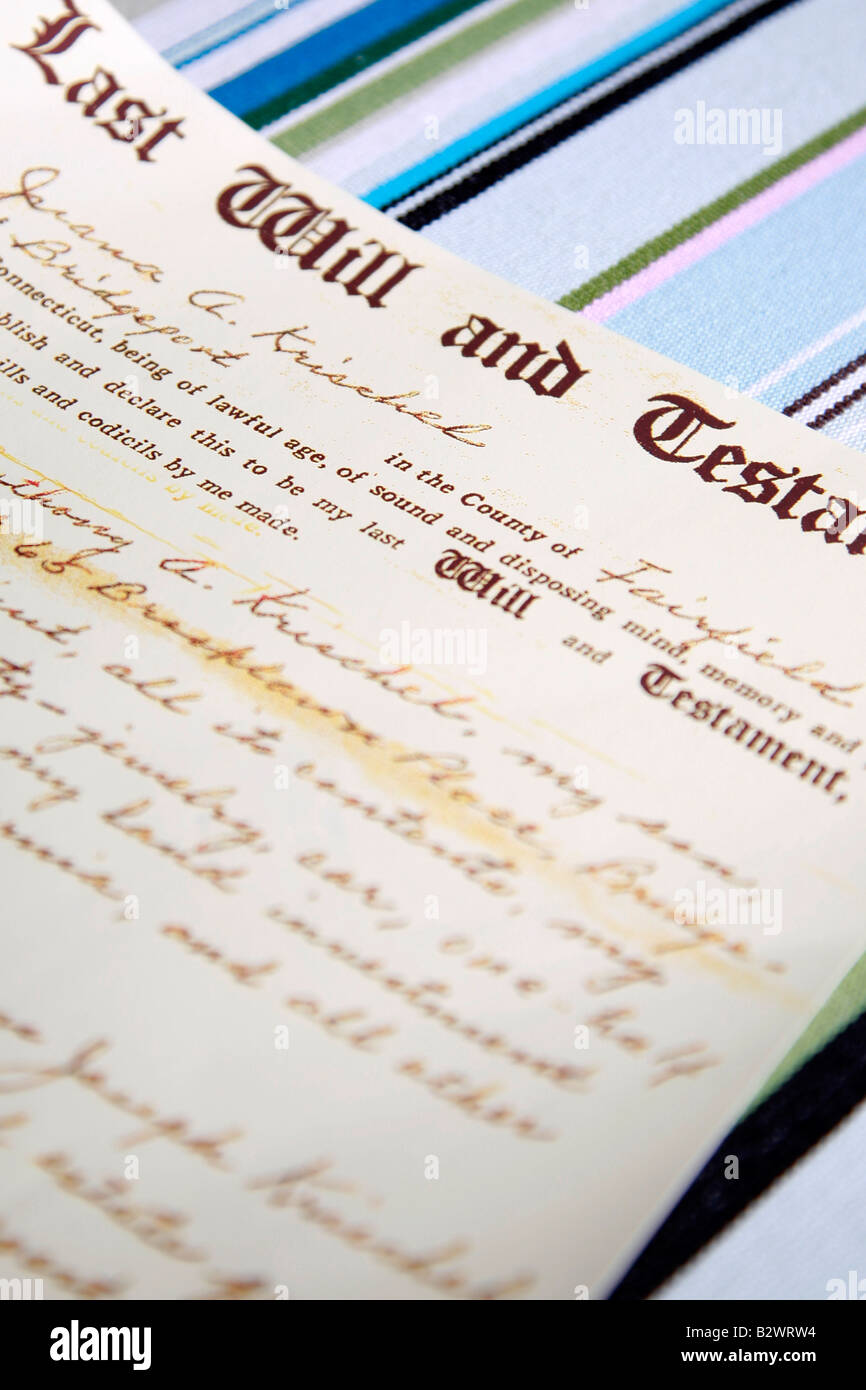 Last Will and Testa
Juana A. Krischel
Bridgeport in the County of Fairfield
Connecticut, being of lawful age, of sound and disposing mind, memory and
blish and declare this to be my last Will and Testament,
ills and codicils by me made.
thony A. Krischel, my son,
68 Brooklawn Place, Bridge-
all its contents, my
ty - jewelry, car, one-half
my land investment
and all other
Joseph
estate
alamy
B2WRW4
www.alamy.com